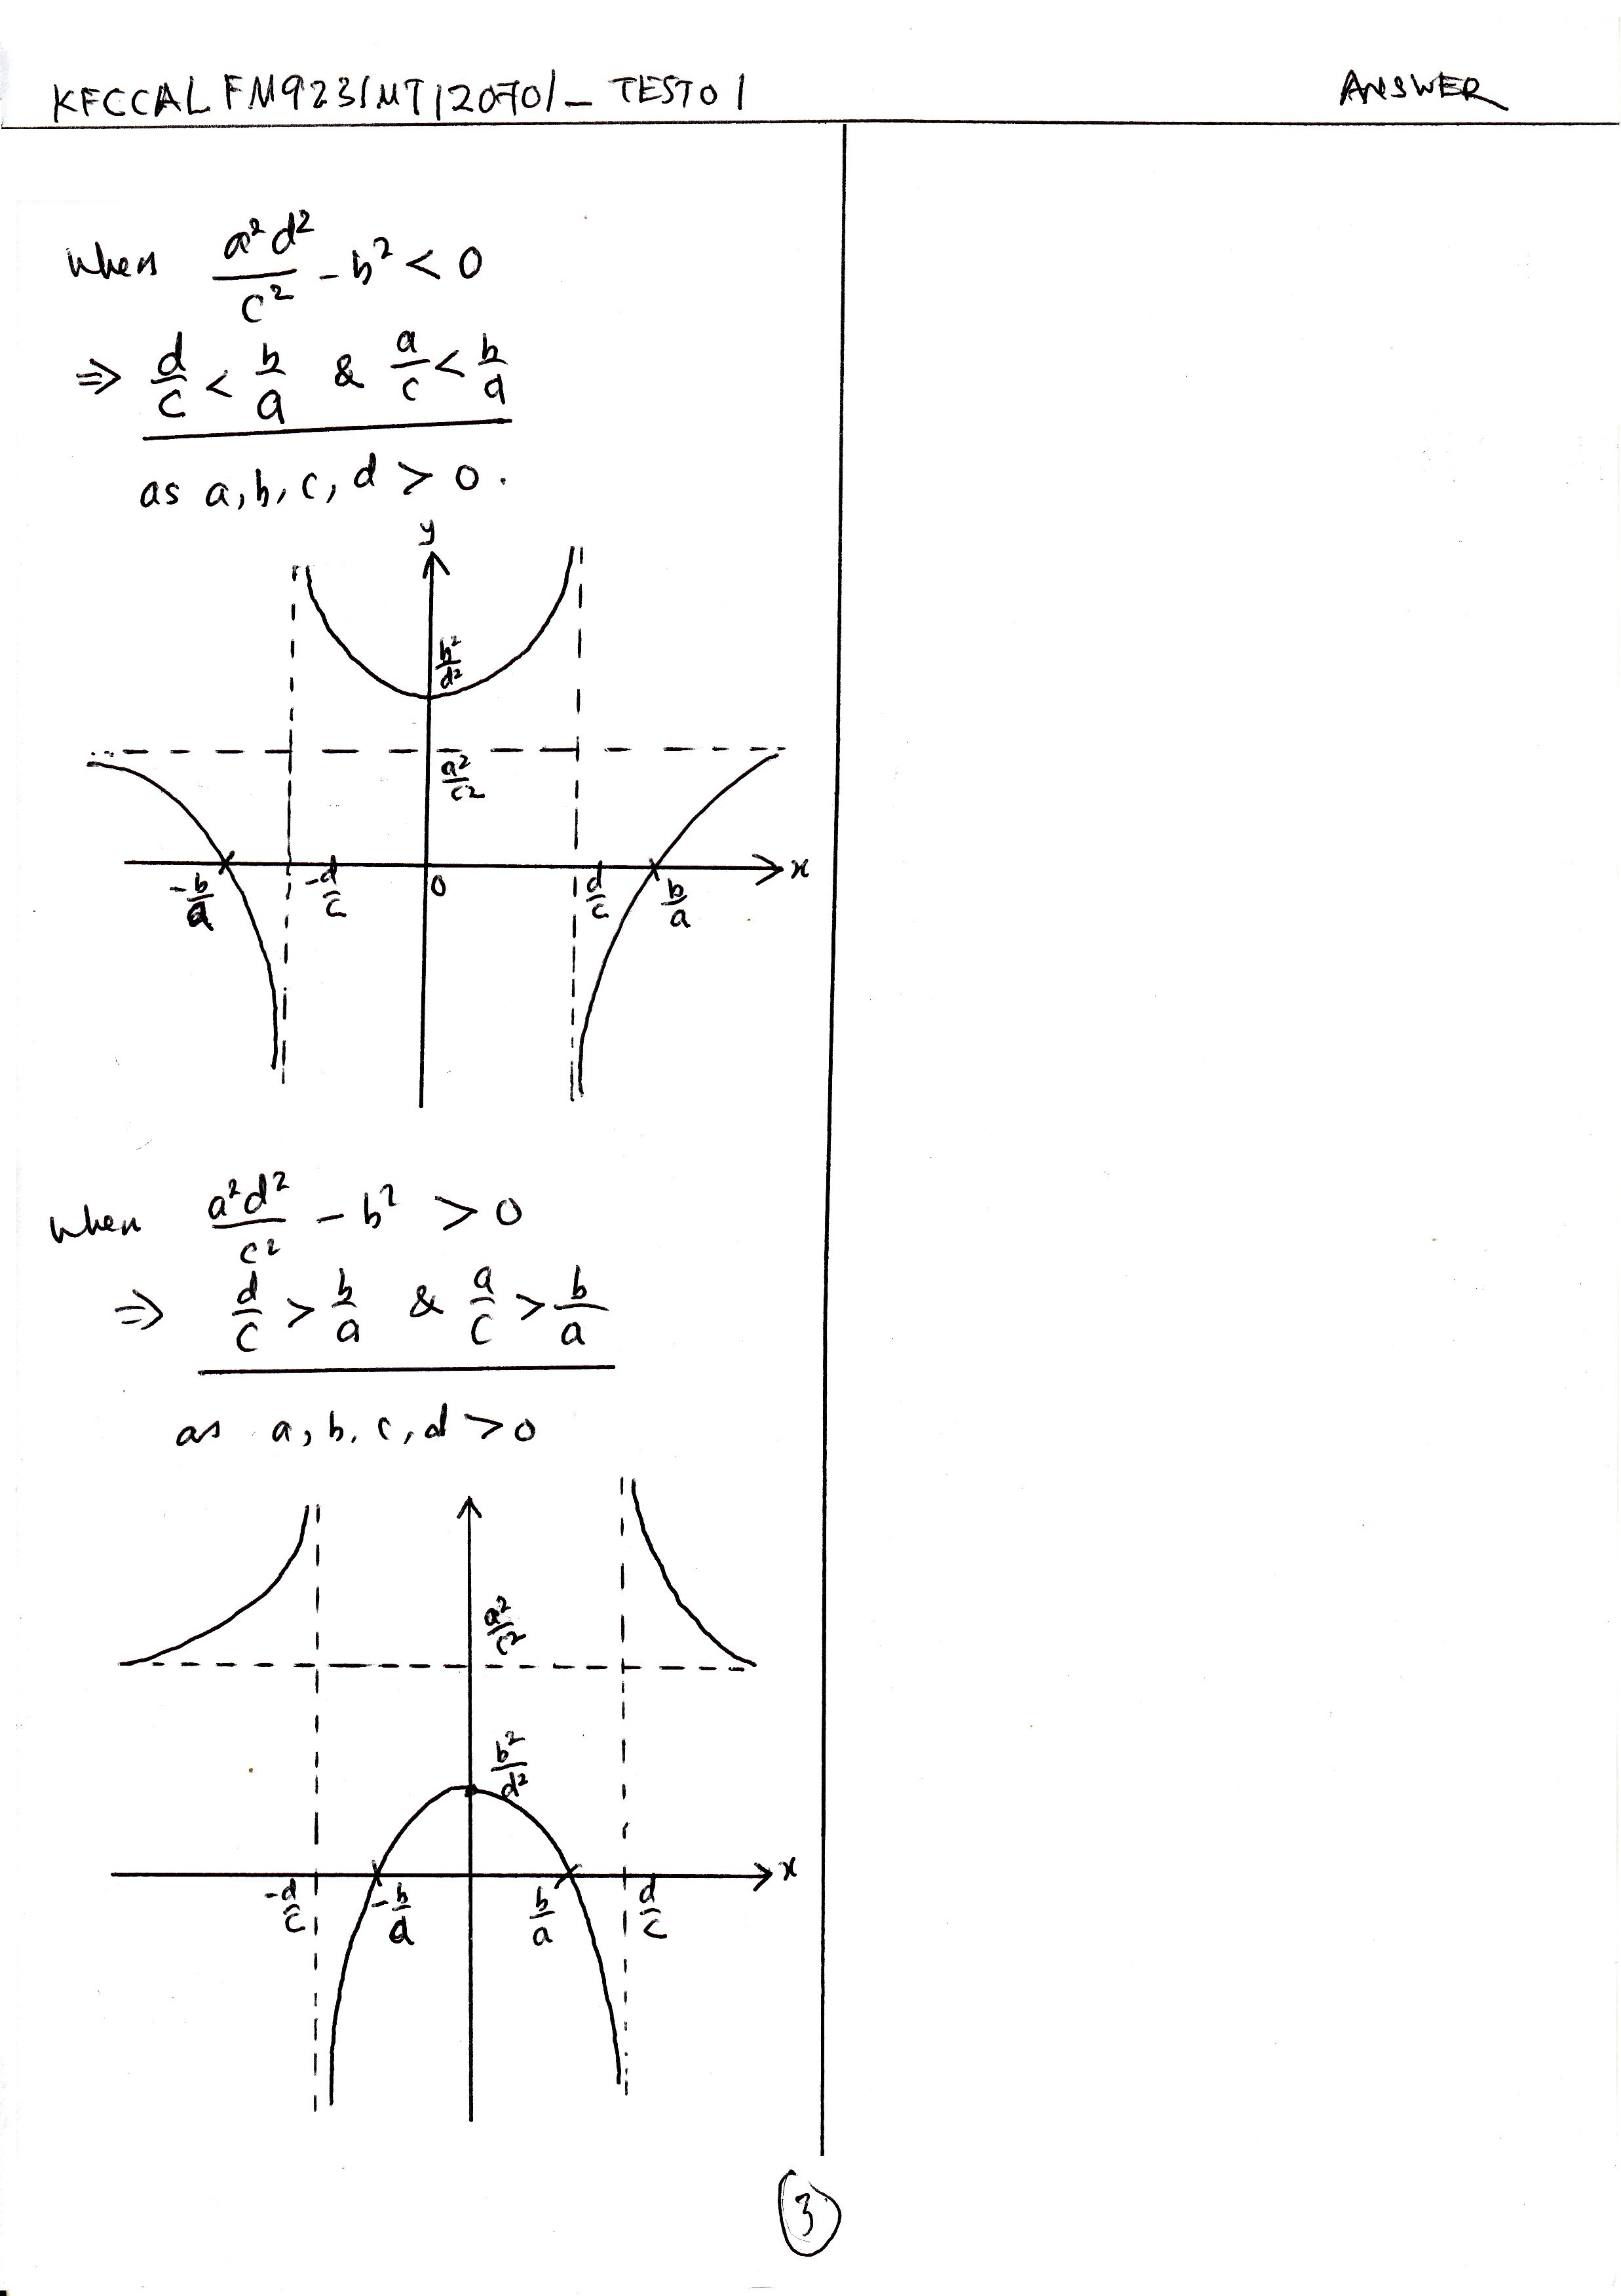 KFCCAL FM9231MT120701- TEST01 ANSWER
When a²d²/c² - b² < 0
⇒ d/c < b/a & a/c < b/a
as a, b, c, d > 0.
y
b²/d²
a²/c²
-b/a -d/c 0 d/c b/a x
When a²d²/c² - b² > 0
⇒ d/c > b/a & a/c > b/a
as a, b, c, d > 0
a²/c²
b²/d²
x
-d/c -b/a b/a d/c
3